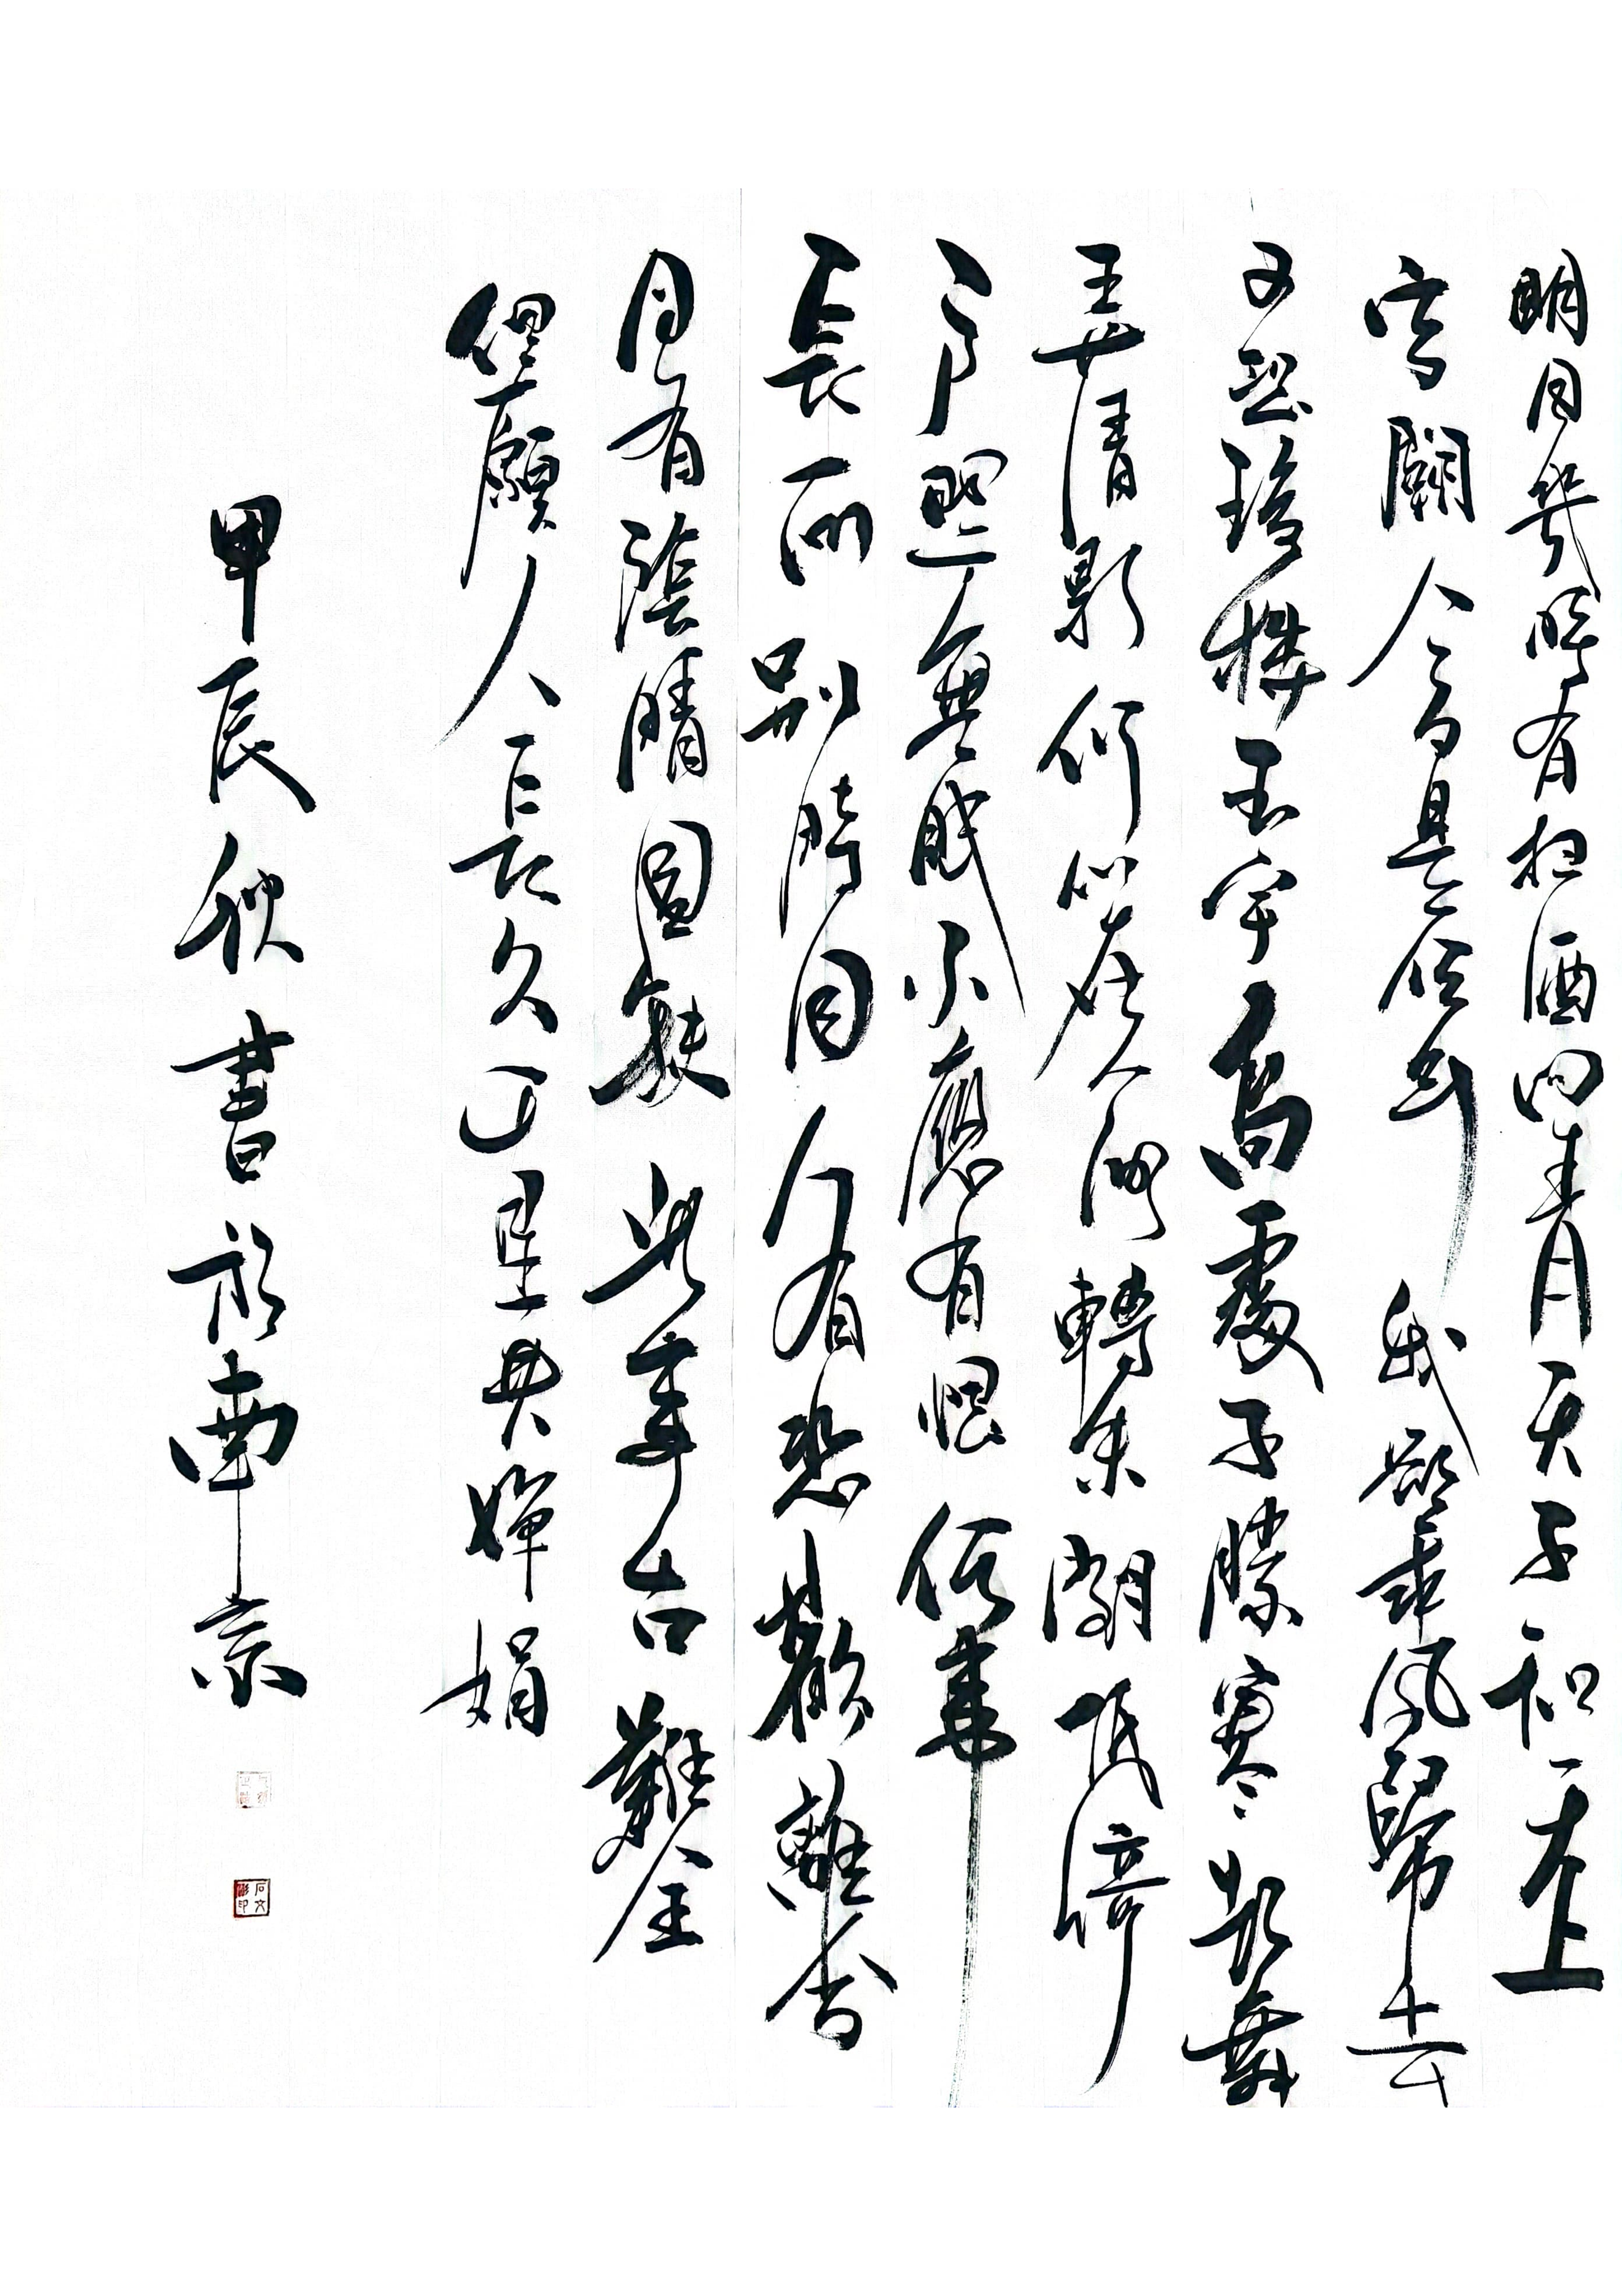 明月幾時有把酒問青天不知天上
宮闕今夕是何年我欲乘風歸去
又恐瓊樓玉宇高處不勝寒起舞
弄清影何似在人間轉朱閣低綺
戶照無眠不應有恨何事
長向別時圓人有悲歡離合
月有陰晴圓缺此事古難全
但願人長久千里共嬋娟
甲辰秋書於南京